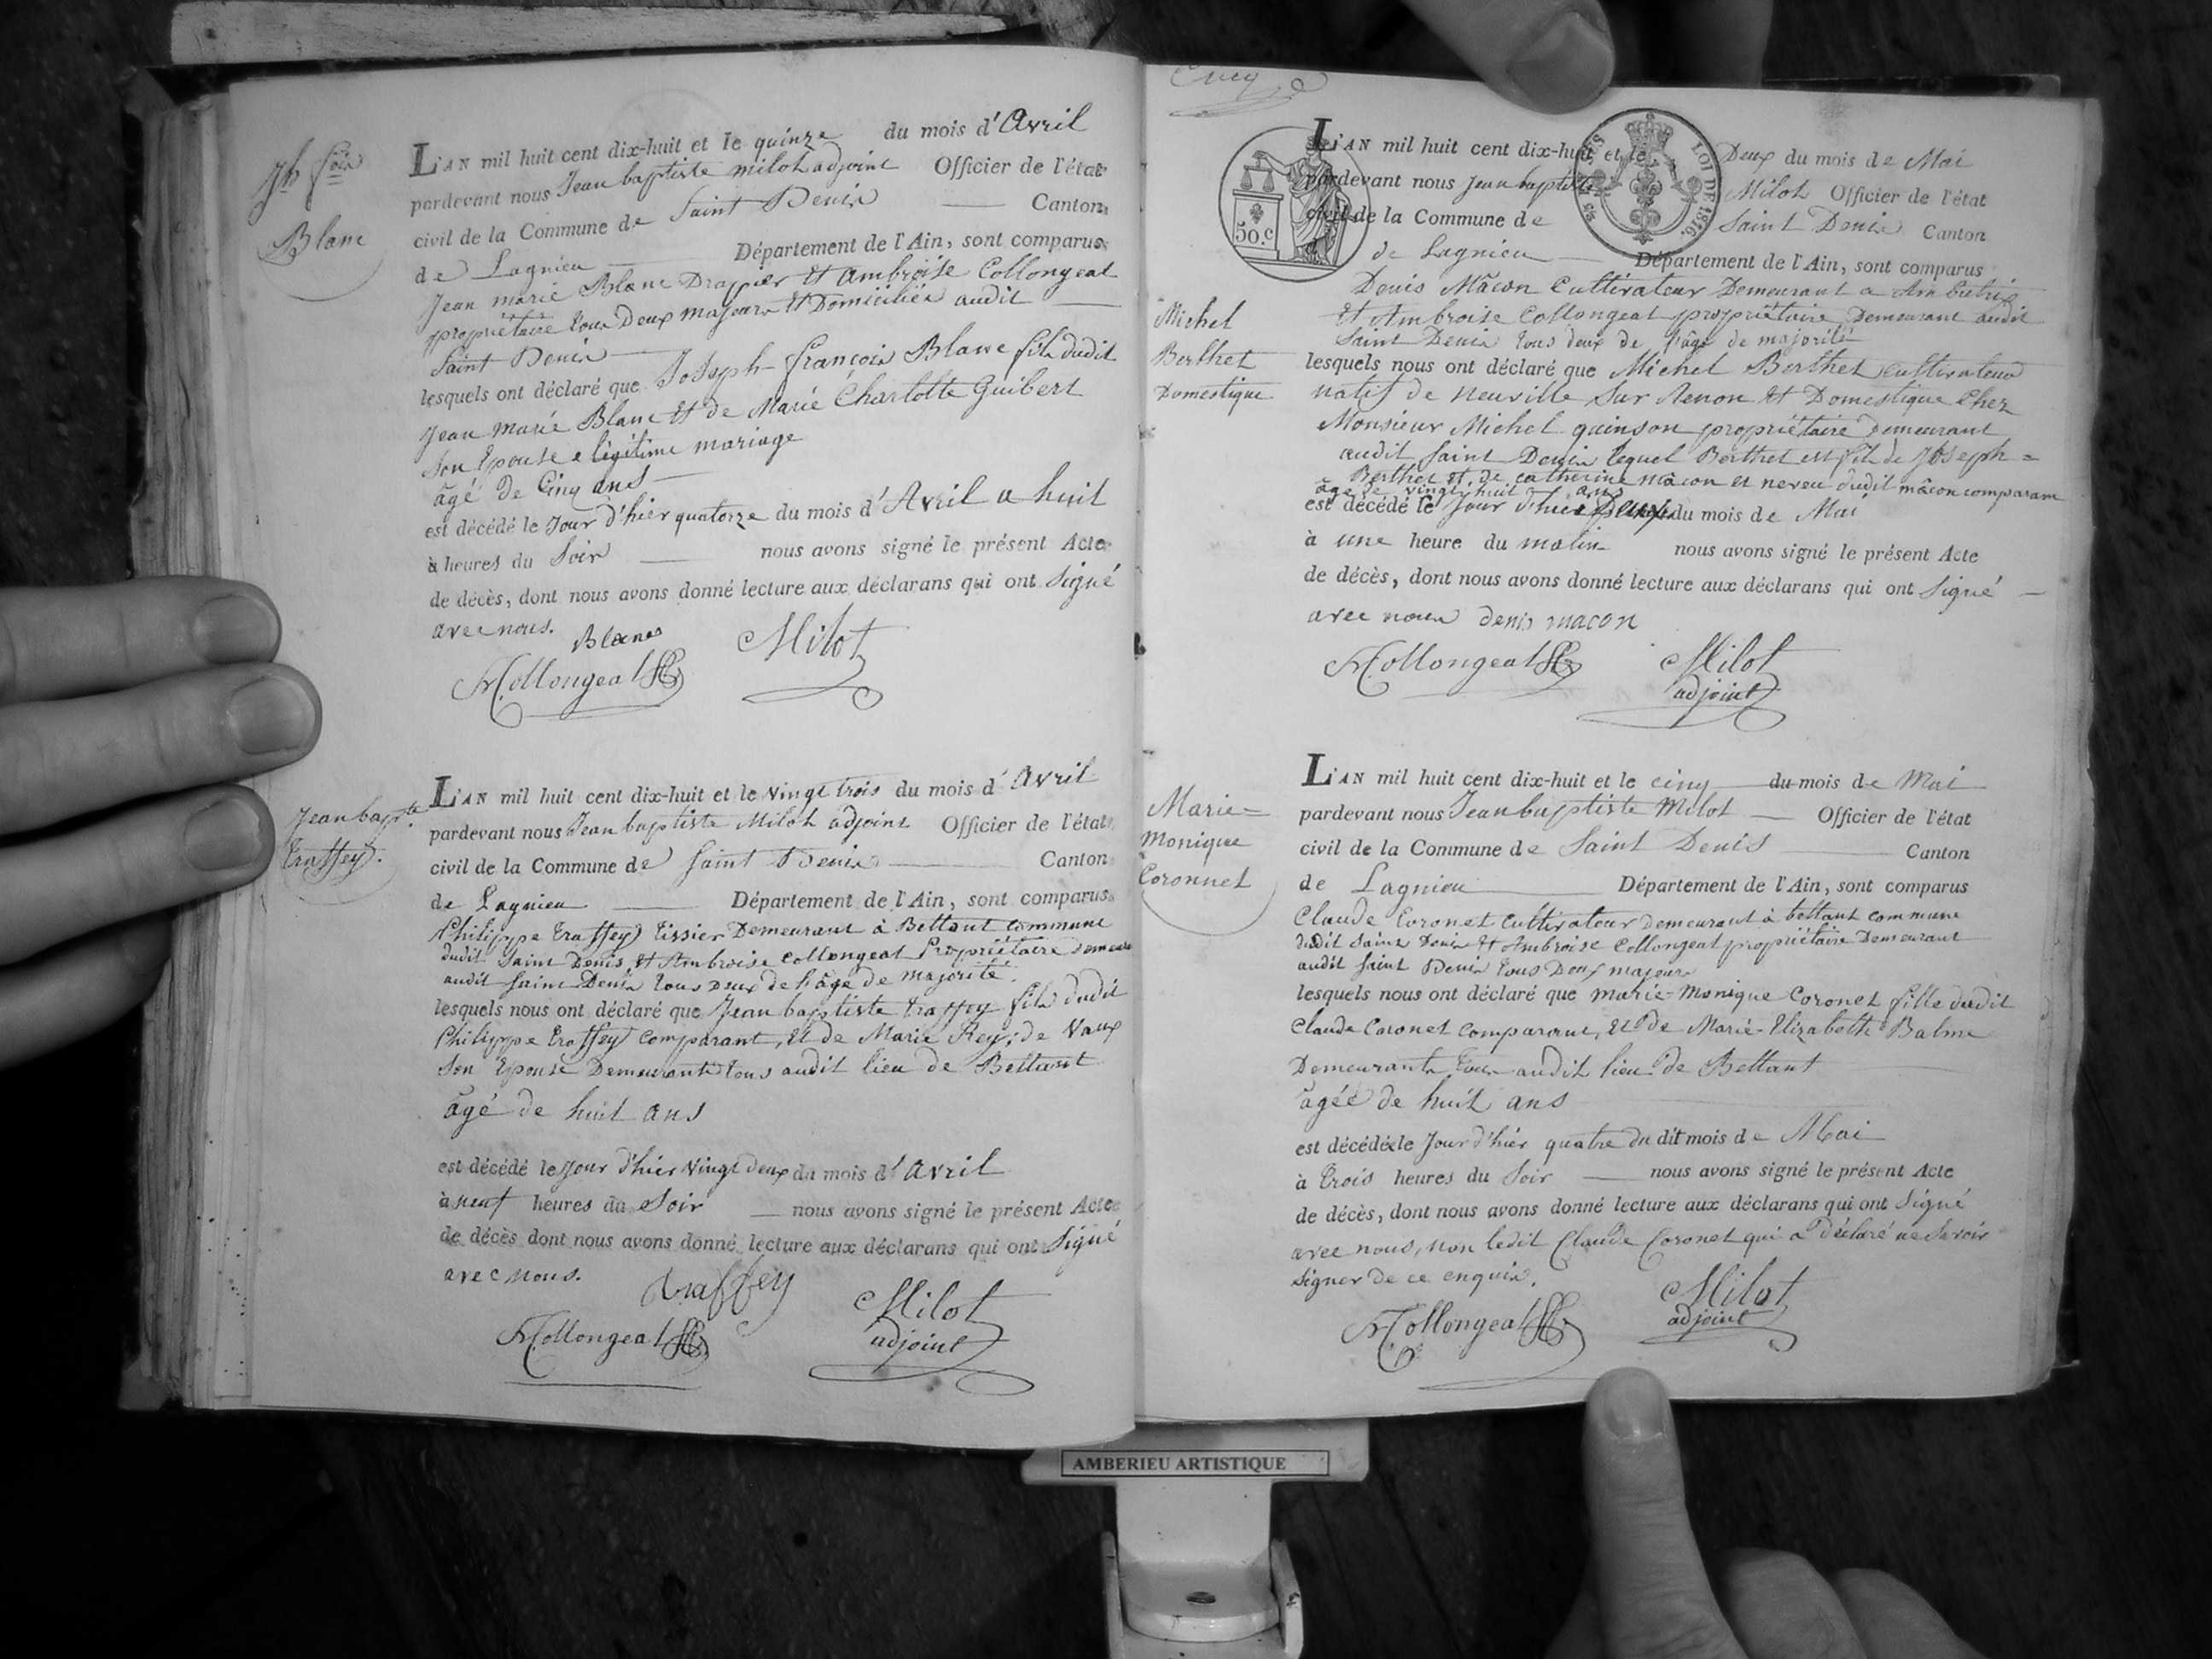 Jh fois
Blanc
L'AN mil huit cent dix-huit et le quinze du mois d'Avril
pardevant nous Jean baptiste milot adjoint Officier de l'état
civil de la Commune de Saint Denis Canton
de Lagnieu Département de l'Ain, sont comparus
Jean marie Blanc Drapier et Ambroise Collongeat
propriétaire tous Deux majeurs et Domiciliés audit
Saint Denis
lesquels ont déclaré que Joseph-françois Blanc fils dudit
Jean Marie Blanc et de Marie Charlotte Guibert
son Epouse e légitime mariage
âgé de Cinq ans
est décédé le Jour d'hier quatorze du mois d'Avril a huit
à heures du Soir nous avons signé le présent Acte
de décès, dont nous avons donné lecture aux déclarans qui ont Signé
avec nous. Blanc Milot
Collongeat
Jean bapte
traffey.
L'AN mil huit cent dix-huit et le vingt trois du mois d'Avril
pardevant nous Jean baptiste Milot adjoint Officier de l'état
civil de la Commune de Saint Denis Canton
de Lagnieu Département de l'Ain, sont comparus
Philippe traffey tissier Demeurant à Bettant Commune
dudit Saint Denis, et Ambroise Collongeat Propriétaire demeu
audit Saint Denis tous Deux de l'âge de majorité.
lesquels nous ont déclaré que Jean baptiste traffey fils dudit
Philippe traffey comparant, et de Marie Rey, de Vaux
Son Epouse Demeurants tous audit lieu de Bettant
âgé de huit ans
est décédé le Jour d'hier vingt deux du mois d'Avril
à neuf heures du Soir nous avons signé le présent Acte
de décès dont nous avons donné lecture aux déclarans qui ont Signé
avec nous. traffey
Milot
adjoint
Collongeat
Cinq
50.c
LOI DE 1816.
L'AN mil huit cent dix-huit et le Deux du mois de Mai
pardevant nous Jean baptiste Milot Officier de l'état
civil de la Commune de Saint Denis Canton
de Lagnieu Département de l'Ain, sont comparus
Denis Mâcon Cultivateur Demeurant a Ambutrix
et Ambroise Collongeat propriétaire Demeurant audit
Saint Denis tous deux de l'âge de majorité
Michel
Berthet
Domestique
lesquels nous ont déclaré que Michel Berthet cultivateur
natif de Neuville Sur Renon et Domestique Chez
Monsieur Michel quinson propriétaire Demeurant
audit Saint Denis lequel Berthet est fils de Joseph =
Berthet et de catherine mâcon et neveu dudit mâcon comparant
âgé de vingt huit ans
est décédé le Jour d'hier du mois de Mai
à une heure du matin nous avons signé le présent Acte
de décès, dont nous avons donné lecture aux déclarans qui ont Signé
avec nous denis macon
Collongeat Milot
adjoint
Marie=
Monique
Coronnet
L'AN mil huit cent dix-huit et le cinq du mois de Mai
pardevant nous Jean baptiste Milot Officier de l'état
civil de la Commune de Saint Denis Canton
de Lagnieu Département de l'Ain, sont comparus
Claude Coronet cultivateur demeurant à bettant commune
dudit Saint Denis et Ambroise Collongeat propriétaire Demeurant
audit Saint Denis tous Deux majeurs
lesquels nous ont déclaré que marie-Monique Coronet fille dudit
Claude Coronet comparant, et de Marie-Elizabeth Balme
Demeurants tous audit lieu de Bettant
âgée de huit ans
est décédée le Jour d'hier quatre du dit mois de Mai
à trois heures du Soir nous avons signé le présent Acte
de décès, dont nous avons donné lecture aux déclarans qui ont Signé
avec nous, non ledit Claude Coronet qui a déclaré ne Savoir
signer de ce enquis.
Collongeat Milot
adjoint
AMBERIEU ARTISTIQUE